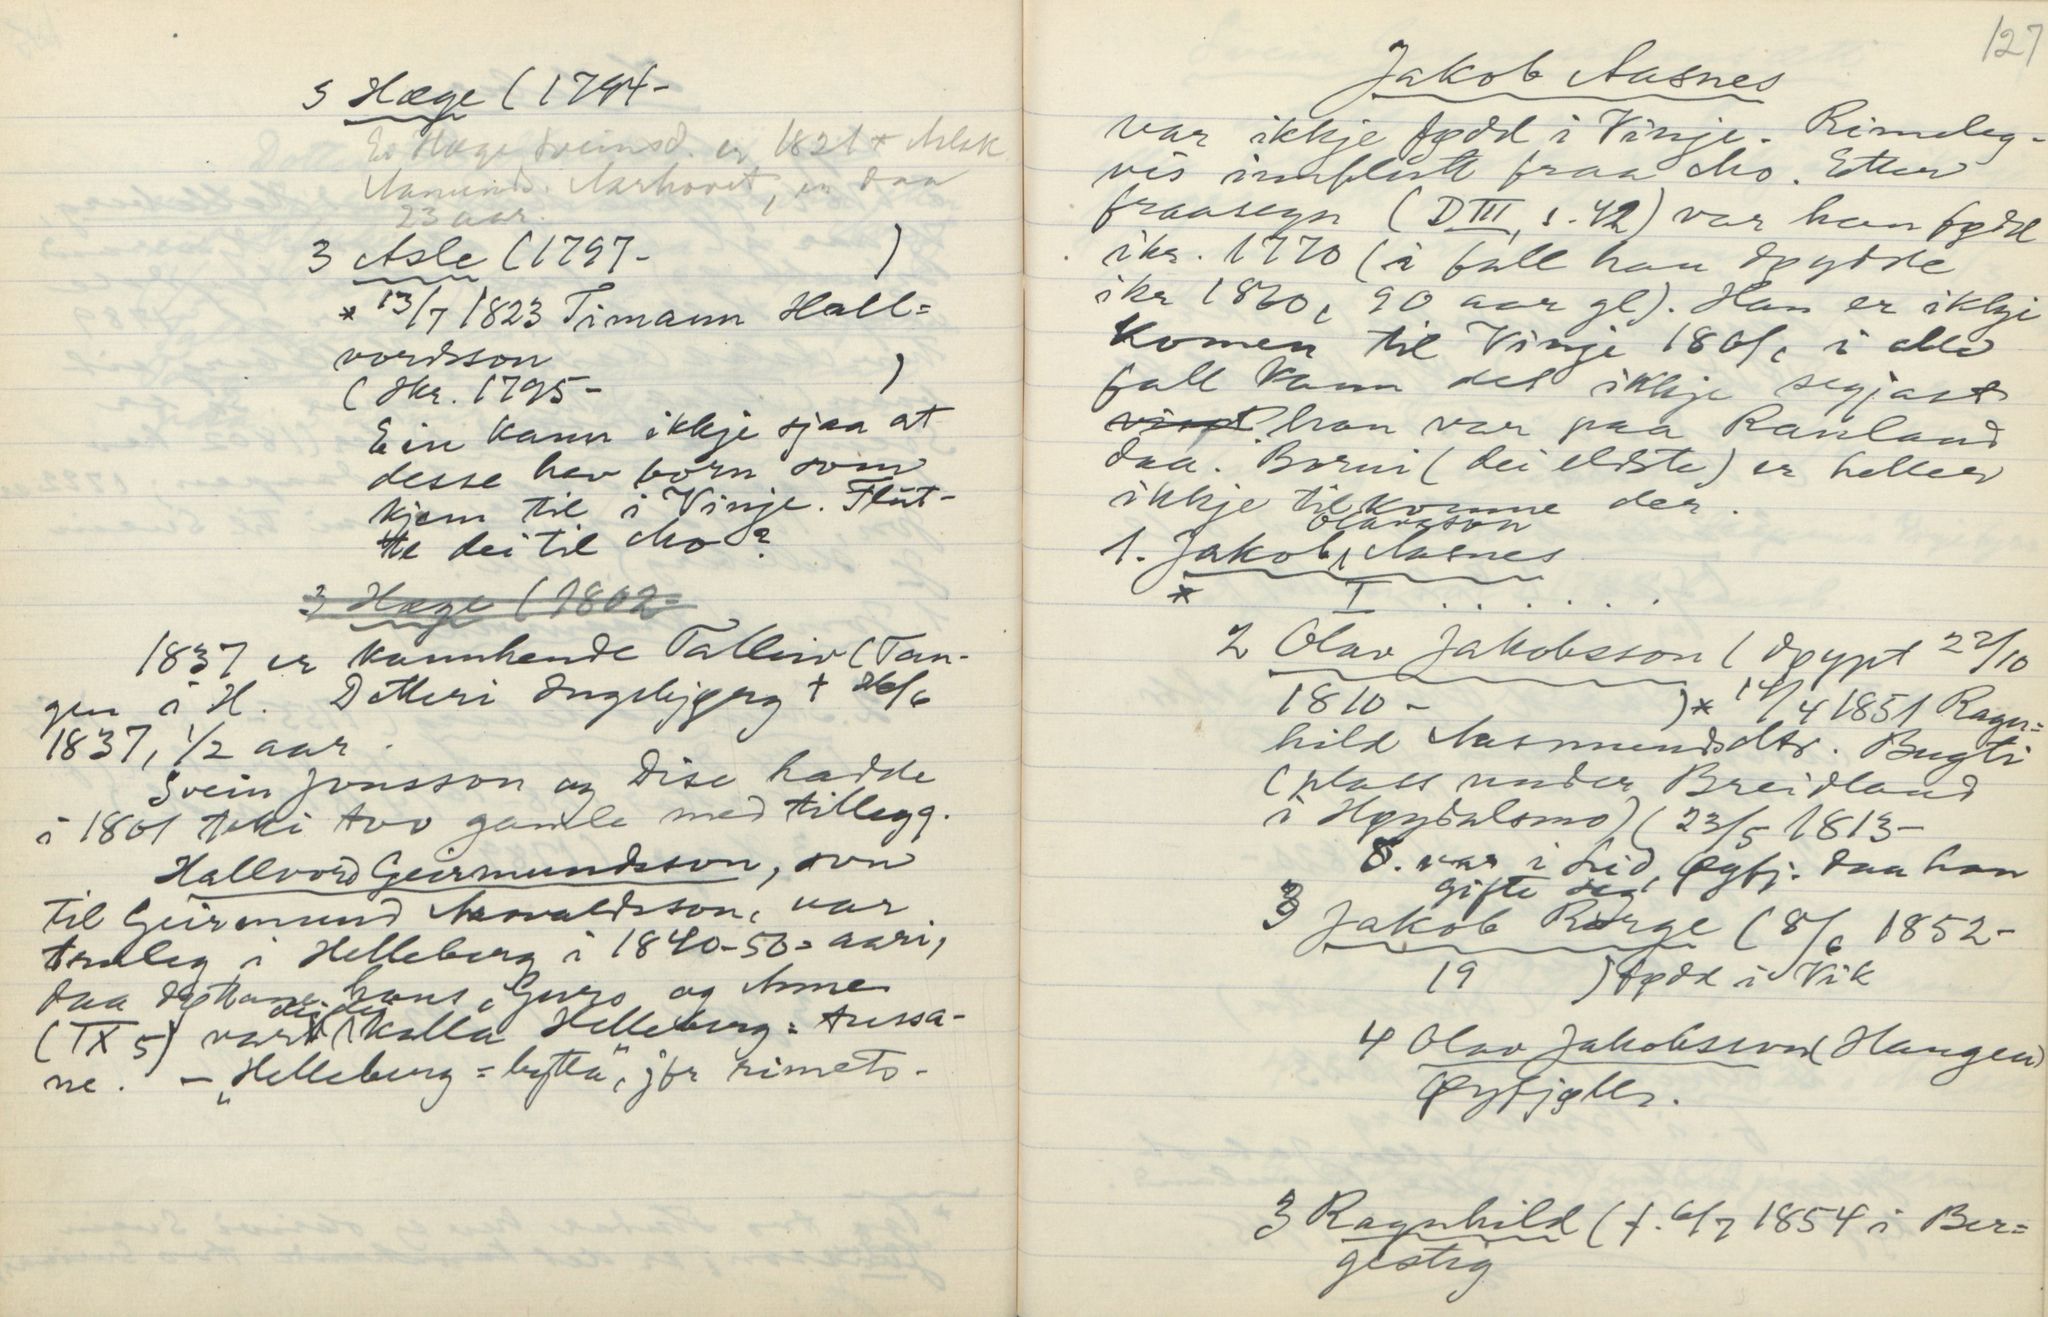 3 Hæge (1794-
Ei Hæge Sveinsd. er 1821 * Aslak
Aamunds. Aarhovet, er daa
23 aar.
3 Asle (1797-          )
* 13/7 1823 Timann Hall=
vordsson
(Skr. 1795-          )
Ein kann ikkje sjaa at
desse hev born som
kjem til i Vinje. Flut-
te dei til Mo?
3 Hæge (1802=
1837 er kannhende Talleiv (Tan-
gen i H. Dotteri Ingebjørg † 26/6
1837, 1/2 aar.
Svein Jonsson og Dise hadde
i 1801 teki tvo gamle med tillegg.
Hallvord Geirmundsson, son
til Geirmund Aasvaldsson, var
truleg i Helleberg i 1840-50=aari,
daa døttane hans, Guro og Anne
(IX 5) vart dei kalla Helleberg=tussa-
ne. - "Helleberg=bytta", jfr rimets.
127
Jakob Aasnes
var ikkje fødd i Vinje. Rimeleg-
vis innflutt fraa Mo. Etter
fraasegn (D III, s. 42) var han fødd
ikr. 1770 (i fall han døydde
ikr 1860, 90 aar gl). Han er ikkje
komen til Vinje 1801, i alle
fall kann det ikkje segjast
visst han var paa Rauland
daa. Borni (dei eldste) er heller
ikkje tilkomne der.
Olavsson
1. Jakob Aasnes
* I . . . . . .
2 Olav Jakobsson (døypt 22/10
1810-          ) * 14/4 1851 Ragn=
hild Aasmundsdtr. Bugti
(plass under Breidland
i Høydalsmo) (23/5 1813-
O. var i Lid, Øyfj. daa han
gifte seg
3 Jakob Rorge (8/6 1852-
19          ) fødd i Vik
4 Olav Jakobsson (Haugen)
Øyfjøll.
3 Ragnhild (f. 6/7 1854 i Ber=
gestig